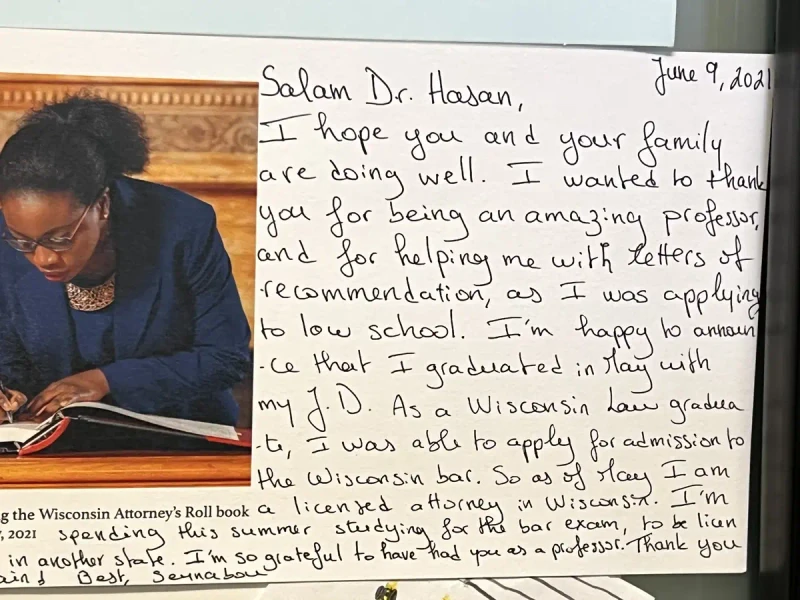 June 9, 2021
Salam Dr. Hasan,
I hope you and your family
are doing well. I wanted to thank
you for being an amazing professor,
and for helping me with letters of
recommendation, as I was applying
to law school. I'm happy to announ
-ce that I graduated in May with
my J.D. As a Wisconsin Law gradua
-te, I was able to apply for admission to
the Wisconsin bar. So as of May I am
a licensed attorney in Wisconsin. I'm
g the Wisconsin Attorney's Roll book
, 2021
spending this summer studying for the bar exam, to be licen
in another state. I'm so grateful to have had you as a professor. Thank you
Best, Seynabou